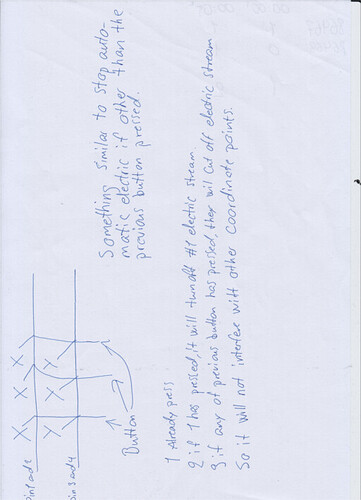 Something similar to stop auto-
matic electric if other than the
previous button pressed.
X X X
Y Y Y
Button
1 Already press
2 if 1 has pressed, it will turn off #1 electric stream
3 if any of previous button has pressed, ther will cut off electric stream
So it will not interfere with other coordinate points.